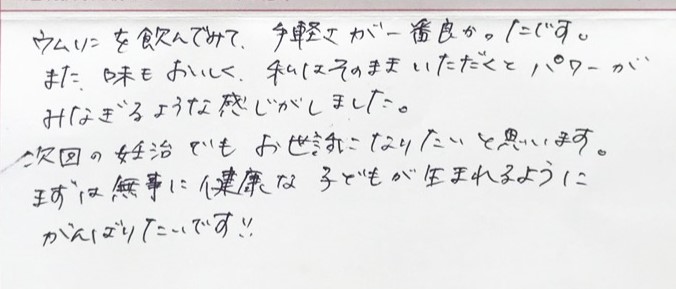 ウムリンを飲んでみて、手軽さが一番良かったです。
また、味もおいしく、私はそのままいただくとパワーが
みなぎるような感じがしました。
次回の妊治でもお世話になりたいと思います。
まずは無事に健康な子どもが生まれるように
がんばりたいです!!